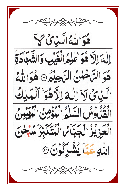 هُوَ اللهُ الَّذِي لَا
إِلٰهَ إِلَّا هُوَ عَالِمُ الْغَيْبِ وَالشَّهَادَةِ
هُوَ الرَّحْمٰنُ الرَّحِيْمُ هُوَ اللهُ
الَّذِي لَا إِلٰهَ إِلَّا هُوَ الْمَلِكُ
الْقُدُّوْسُ السَّلٰمُ الْمُؤْمِنُ الْمُهَيْمِنُ
الْعَزِيْزُ الْجَبَّارُ الْمُتَكَبِّرُ سُبْحٰنَ
اللهِ عَمَّا يُشْرِكُوْنَ